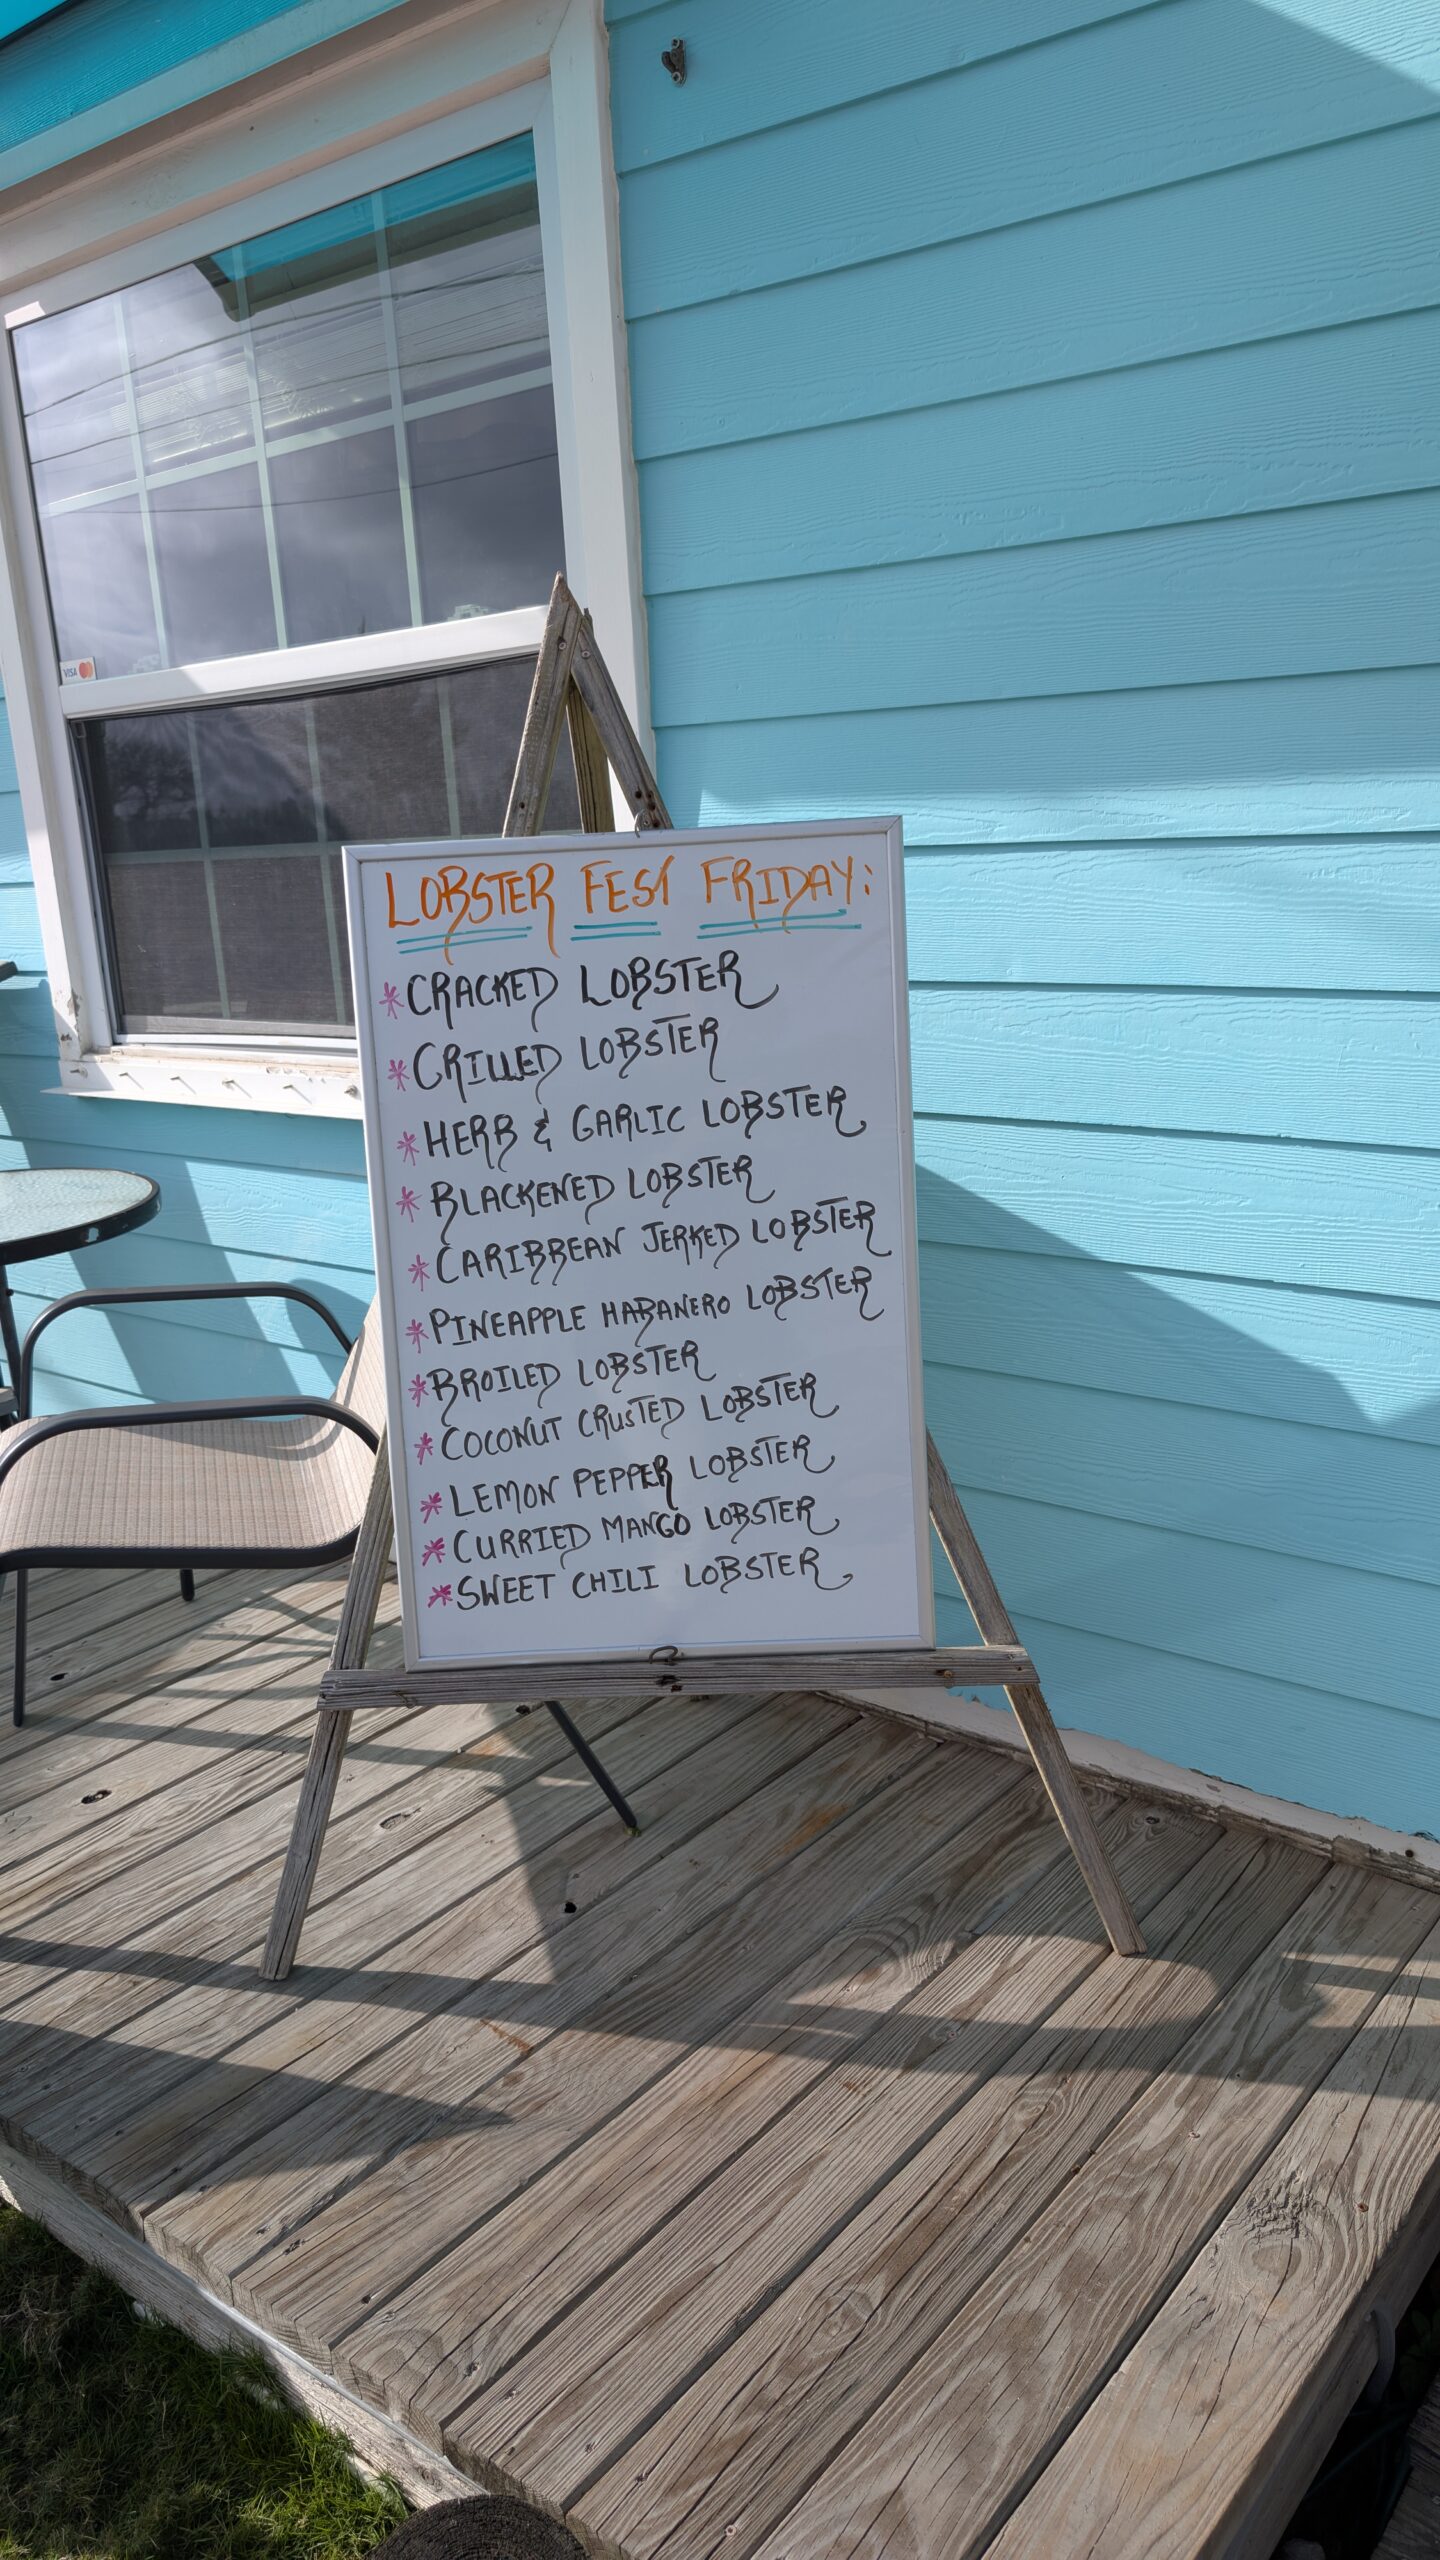 VISA
LOBSTER FEST FRIDAY:
* CRACKED LOBSTER
* GRILLED LOBSTER
* HERB & GARLIC LOBSTER
* BLACKENED LOBSTER
* CARIBBEAN JERKED LOBSTER
* PINEAPPLE HABANERO LOBSTER
* BROILED LOBSTER
* COCONUT CRUSTED LOBSTER
* LEMON PEPPER LOBSTER
* CURRIED MANGO LOBSTER
* SWEET CHILI LOBSTER